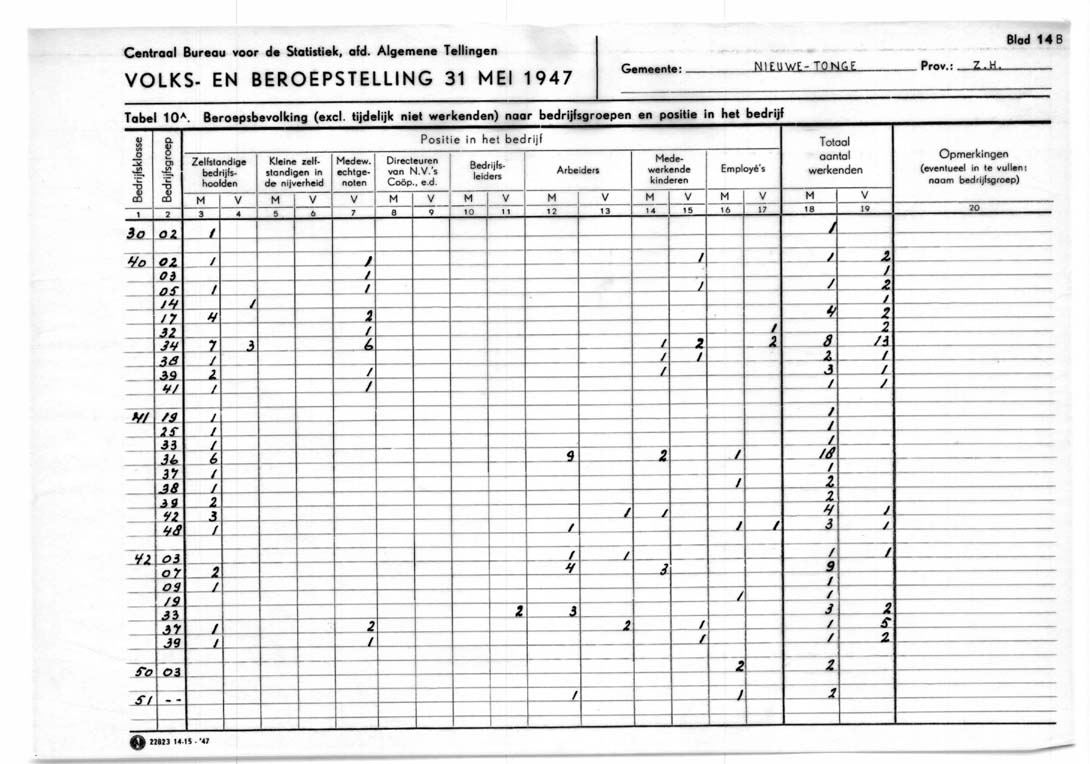 Centraal Bureau voor de Statistiek, afd. Algemene Tellingen
Blad 14 B
VOLKS- EN BEROEPSTELLING 31 MEI 1947
Gemeente: NIEUWE-TONGE Prov.: Z.H.
Tabel 10A. Beroepsbevolking (excl. tijdelijk niet werkenden) naar bedrijfsgroepen en positie in het bedrijf
Bedrijfsklasse
Bedrijfsgroep
Positie in het bedrijf
Zelfstandige
bedrijfs-
hoofden
Kleine zelf-
standigen in
de nijverheid
Medew.
echtge-
noten
Directeuren
van N.V.'s
Coöp., e.d.
Bedrijfs-
leiders
Arbeiders
Mede-
werkende
kinderen
Employé's
Totaal
aantal
werkenden
Opmerkingen
(eventueel in te vullen:
naam bedrijfsgroep)
M V M V V M V M V M V M V M V M V
1 2 3 4 5 6 7 8 9 10 11 12 13 14 15 16 17 18 19 20
30 02 1 1
40 02 1 1 1 1 2
03 1 1
05 1 1 1 1 2
14 1 1
17 4 2 4 2
32 1 1 2
34 7 3 6 1 2 2 8 13
38 1 1 1 2 1
39 2 1 1 3 1
41 1 1 1 1
41 19 1 1
25 1 1
33 1 1
36 6 9 2 1 18
37 1 1
38 1 1 2
39 2 2
42 3 1 1 4 1
48 1 1 1 1 3 1
42 03 1 1 1 1
07 2 4 3 9
09 1 1
19 1 1
33 2 3 3 2
37 1 2 2 1 1 5
39 1 1 1 1 2
50 03 2 2
51 -- 1 1 2
22823 14-15 - '47